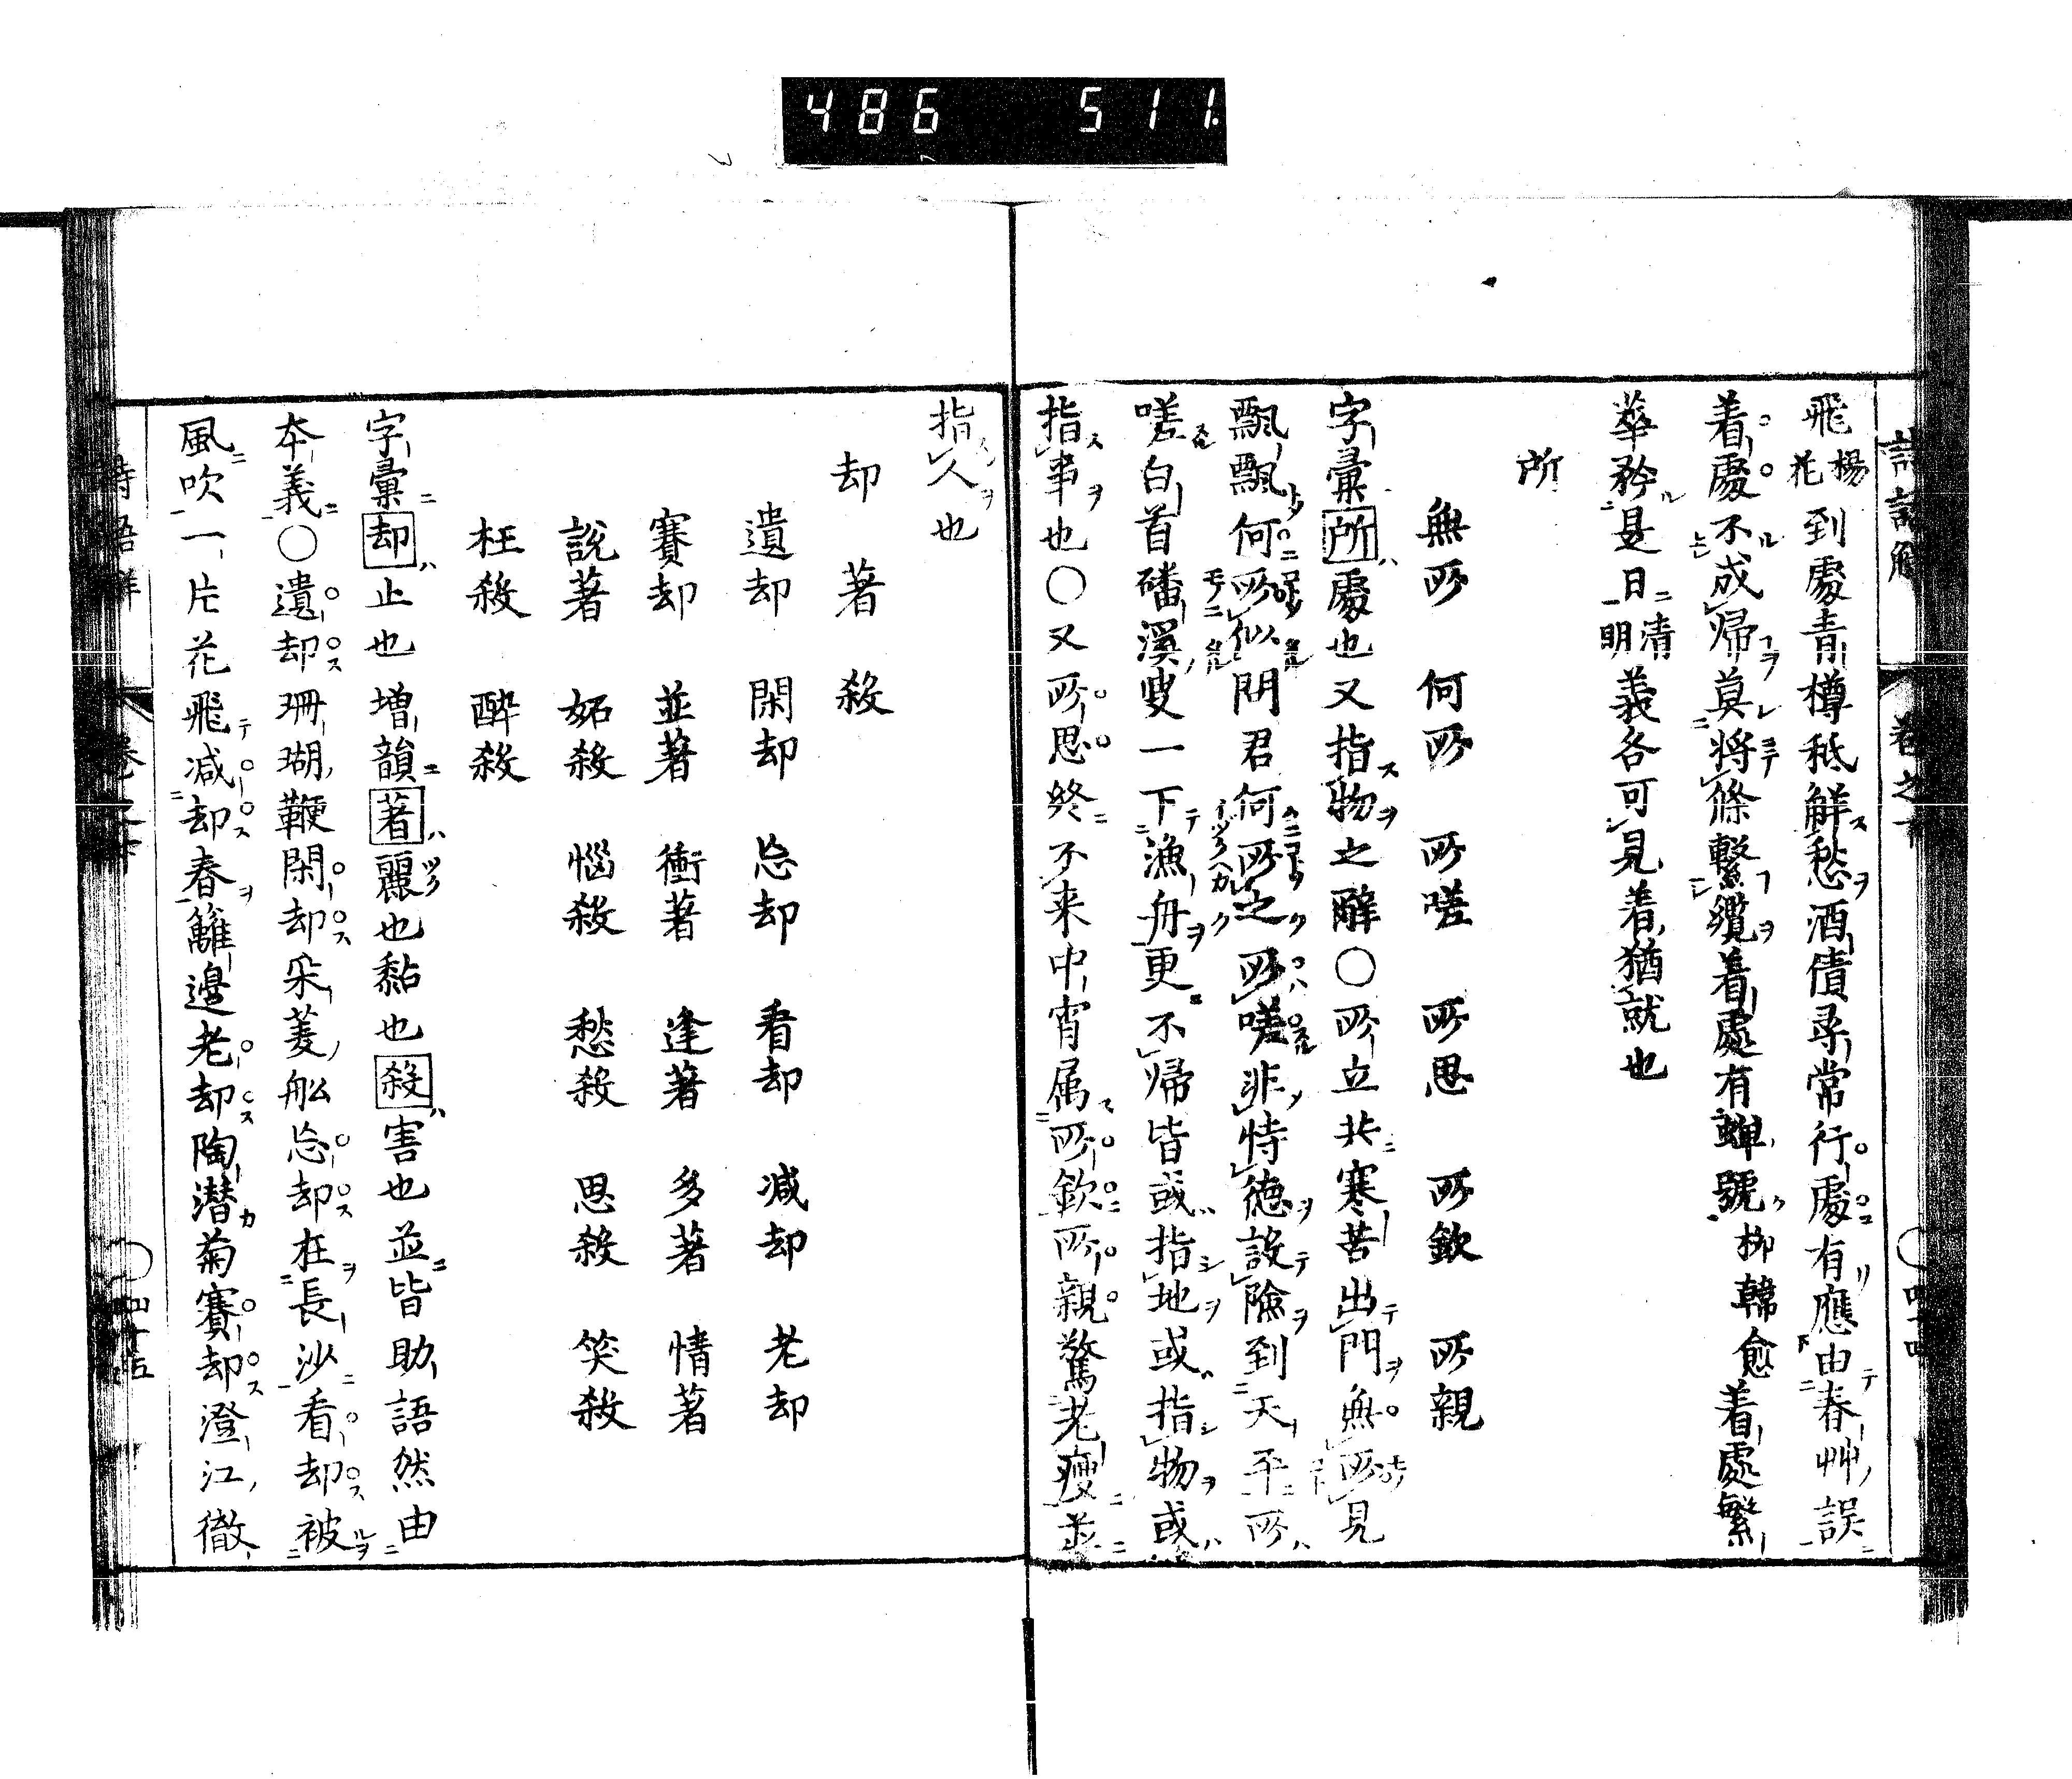 486 511
詩語解 卷之下
飛楊花到處青樽秪觧愁酒債尋常行處有應由春艸誤
着處不成帰莫將條繫纜着處有蟬號柳韓愈着處繁
華矜是日清明義各可見着猶就也
所
無所 何所 所嗟 所思 所欽 所親
字彙所處也又指物之辭〇所立共寒苦出門無所見
飄飄何所似問君何所之所嗟非恃德設險到天平所
嗟白首磻溪叟一下漁舟更不帰皆或指地或指物或
指事也〇又所思終不来中宵属所欽所親驚老瘦並
指人也
却 著 殺
遺却 閑却 忘却 看却 减却 老却
賽却 並著 衝著 逢著 多著 情著
說著 妬殺 惱殺 愁殺 思殺 笑殺
枉殺 醉殺
字彙却止也增韻著麗也黏也殺害也並皆助語然由
本義〇遺却珊瑚鞭閑却采菱舩忘却在長沙看却被
風吹一片花飛减却春籬邊老却陶潜菊賽却澄江徹
詩語解 卷之下 四十五